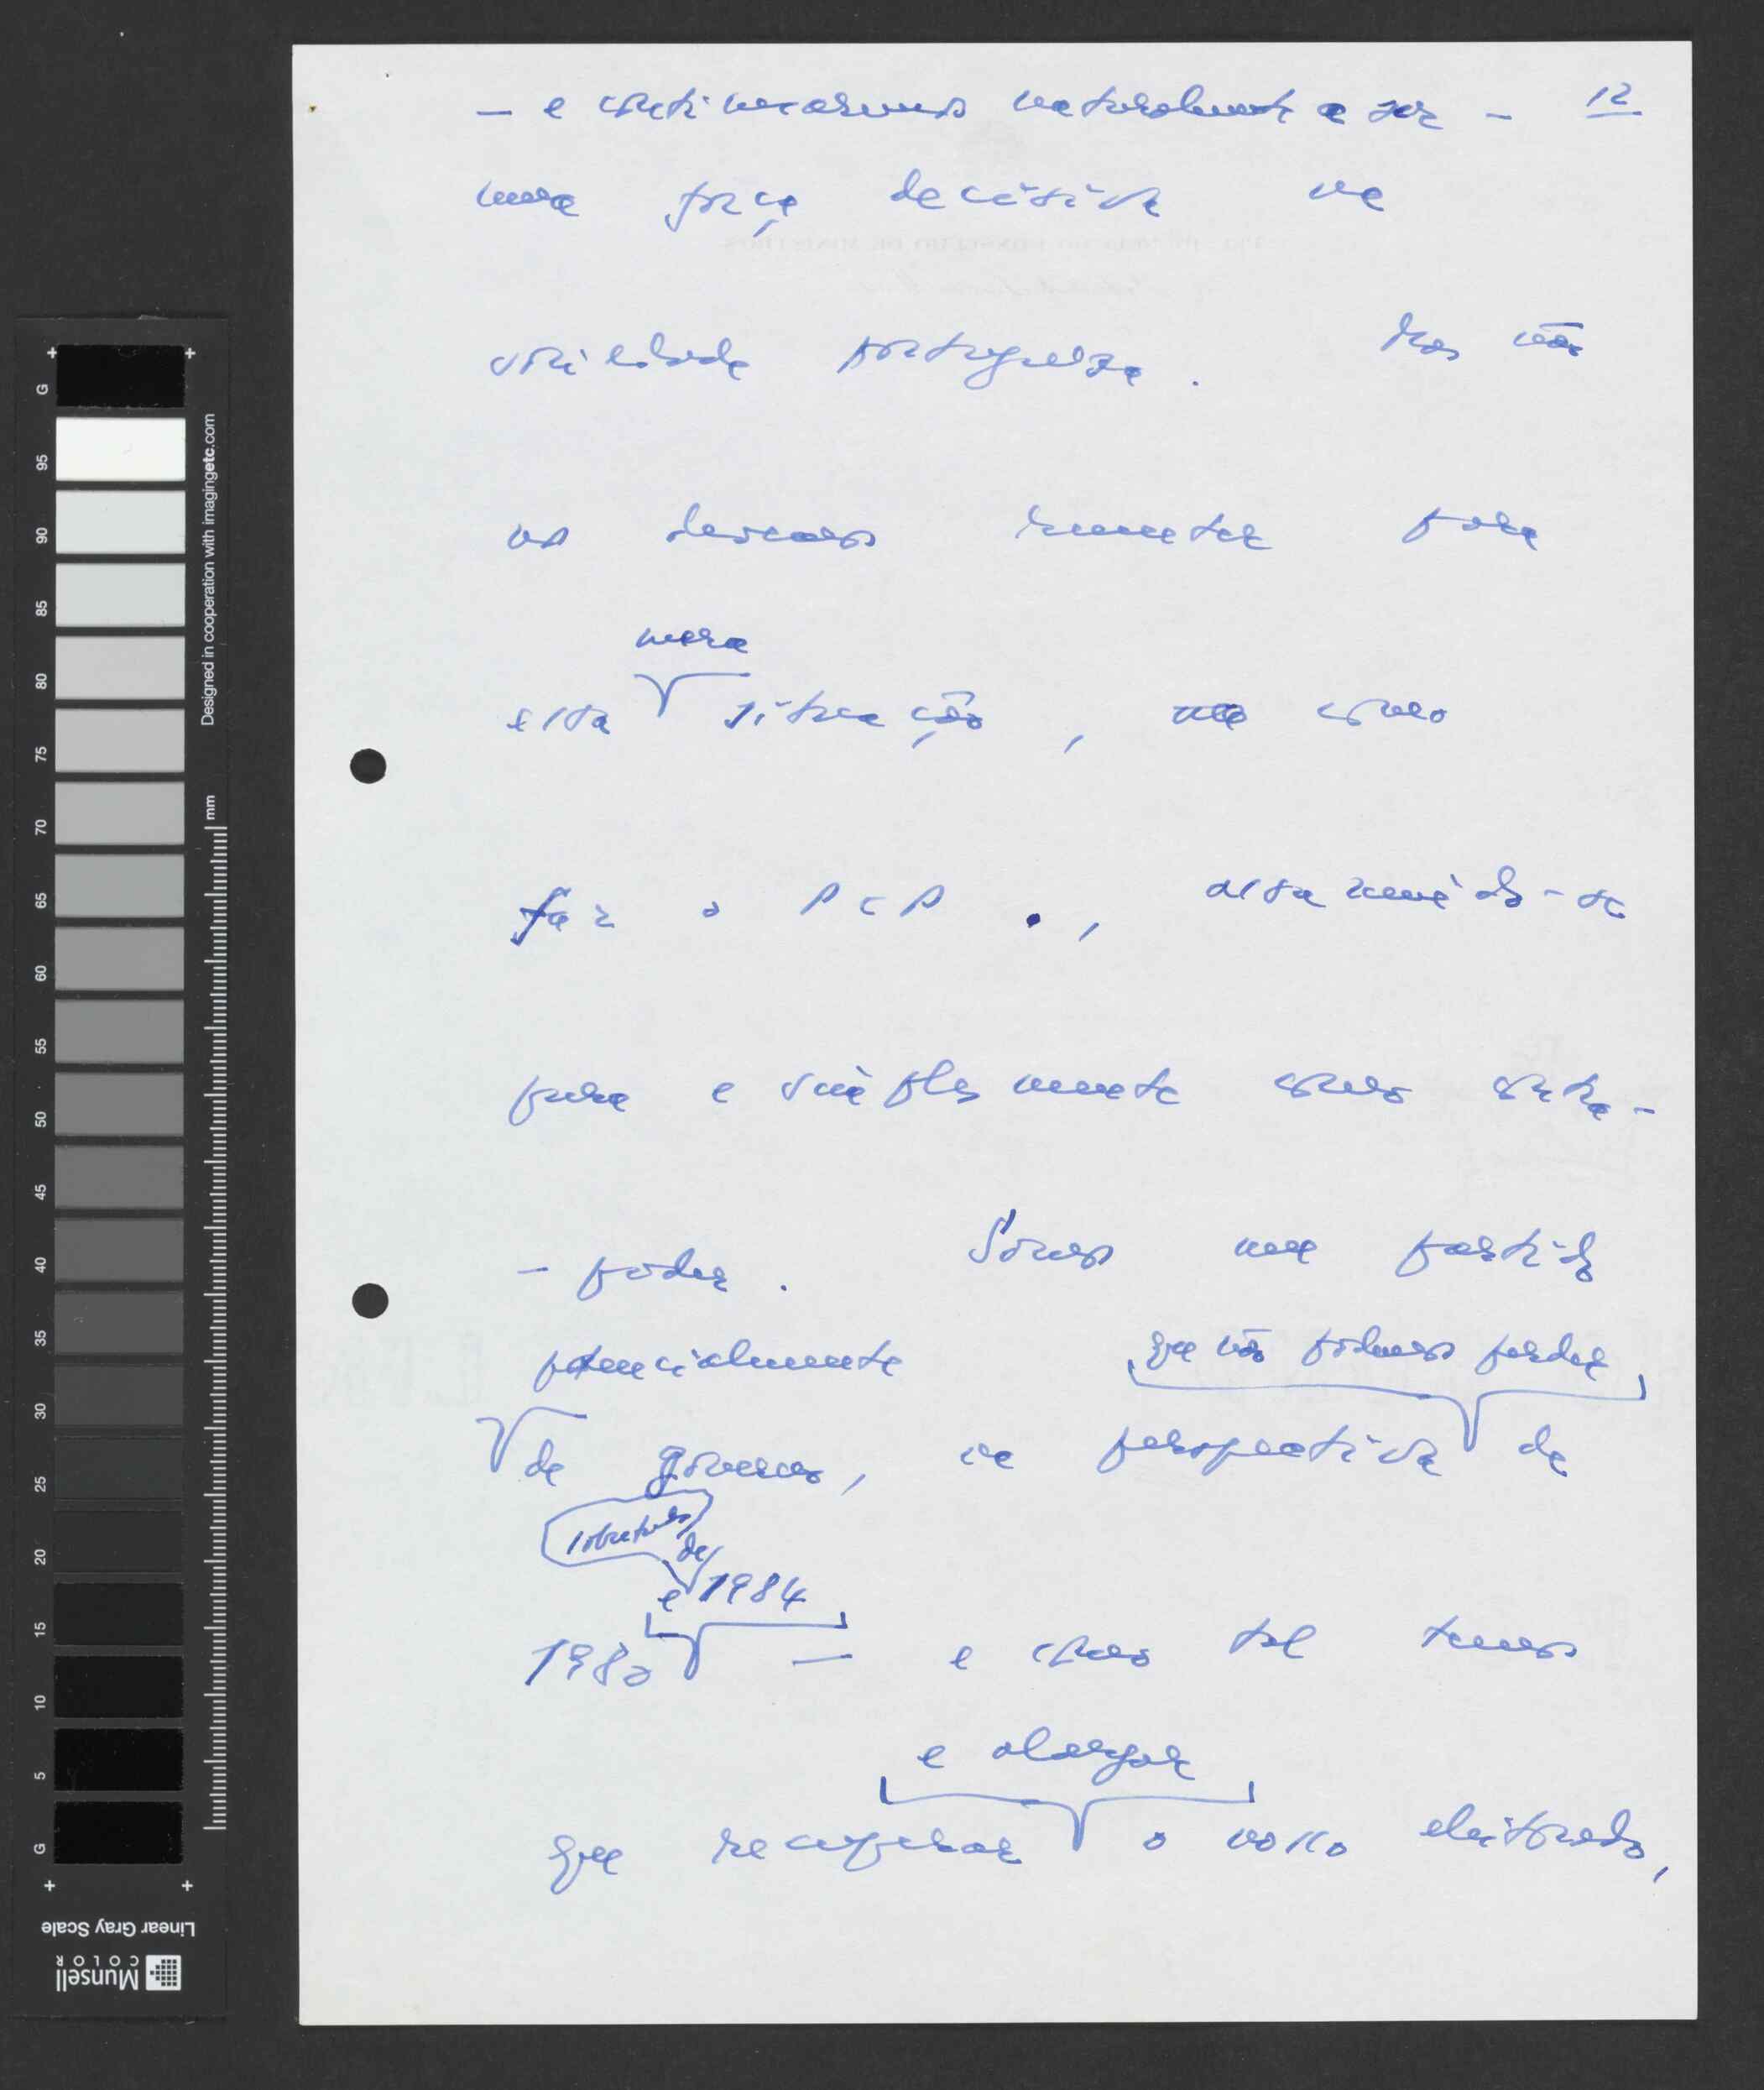 12
- e continuaremos naturalmente a ser -
uma força decisiva na
sociedade portuguesa. Mas não
nos devemos remeter para
mera
esta situação, como
faz o PCP, assumindo-se
pura e simplesmente como contra-
- poder. Somos um partido
potencialmente que não podemos perder
de governo, na perspectiva de
sobretudo
de
e 1984
1980 — e como tal temos
e alargar
que recuperar o nosso eleitorado,
Designed in cooperation with imagingetc.com
mm
G 95 90 85 80 75 70 65 60 55 50 45 40 35 30 25 20 15 10 5 G
Linear Gray Scale
Munsell
COLOR